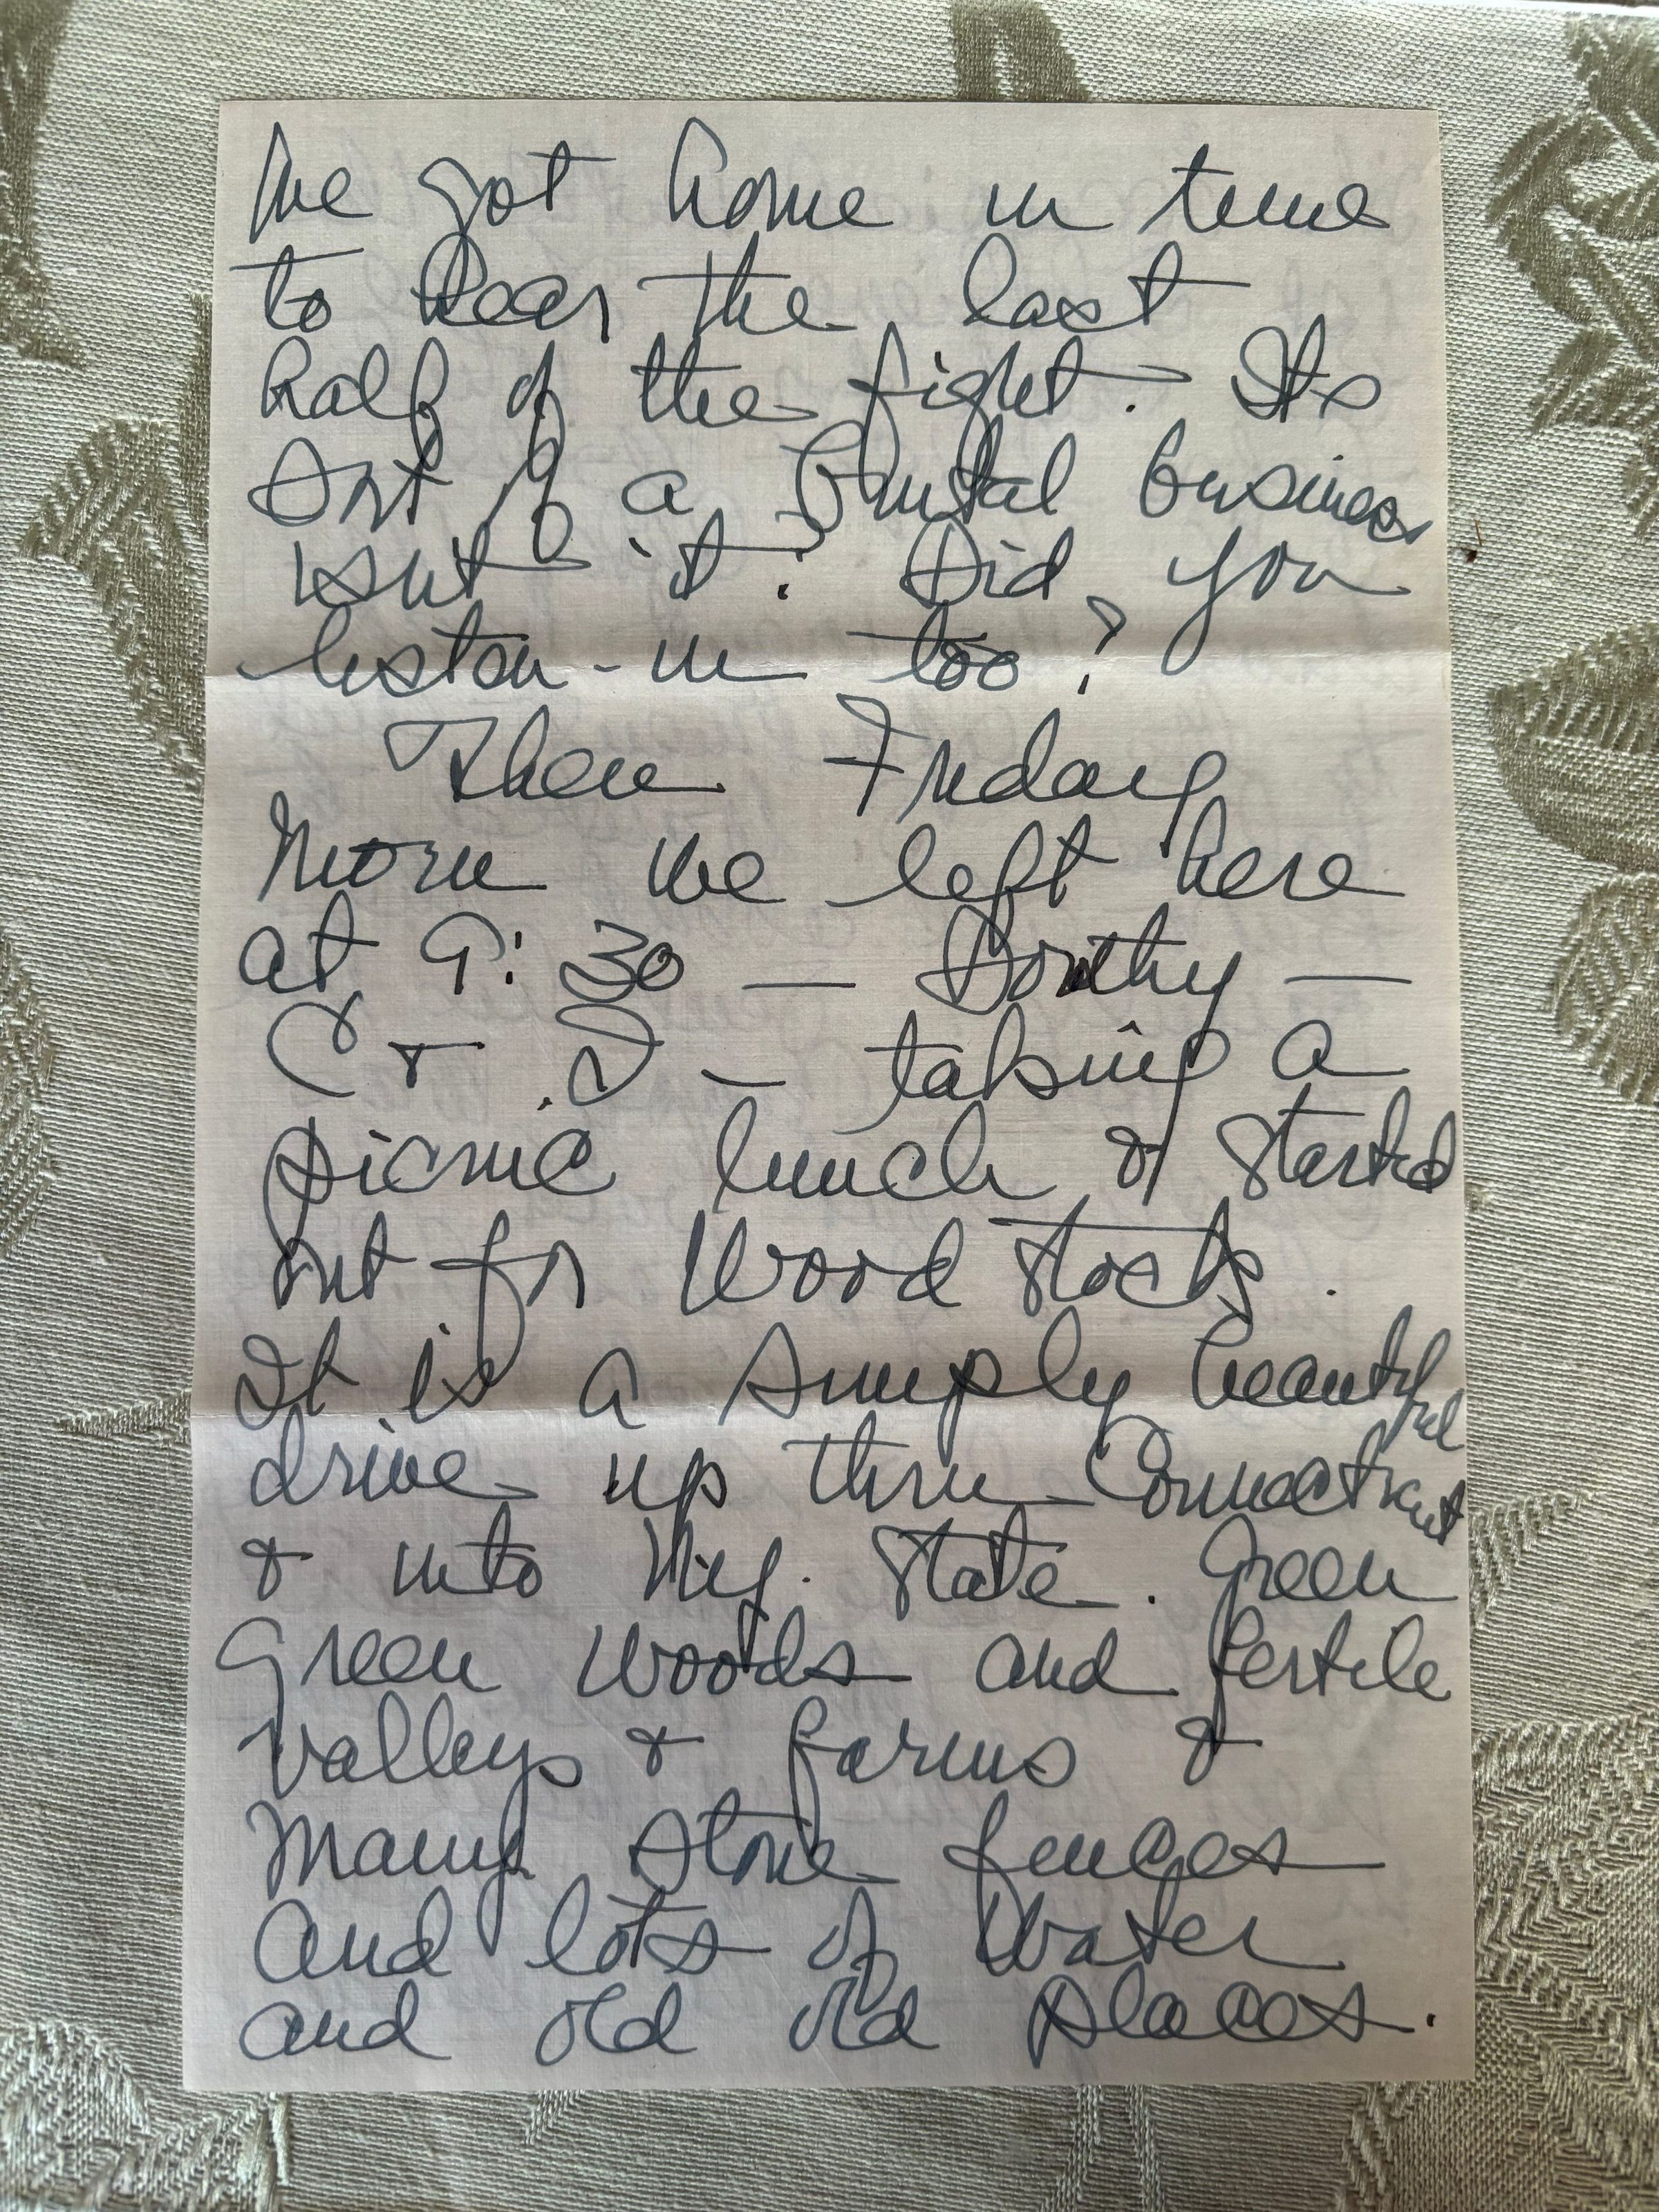 We got home in time
to hear the last
half of the fight. Its
sort of a brutal business
isn't it? Did you
listen-in too?
Then Friday
morn we left here
at 9:30 — Dorothy —
C & I — taking a
picnic lunch & started
out for Woodstock.
It is a simply beautiful
drive up thru Connecticut
& into N.Y. State. Green
Green Woods and fertile
valleys & farms &
Many stone fences
and lots of Water
and old old places.